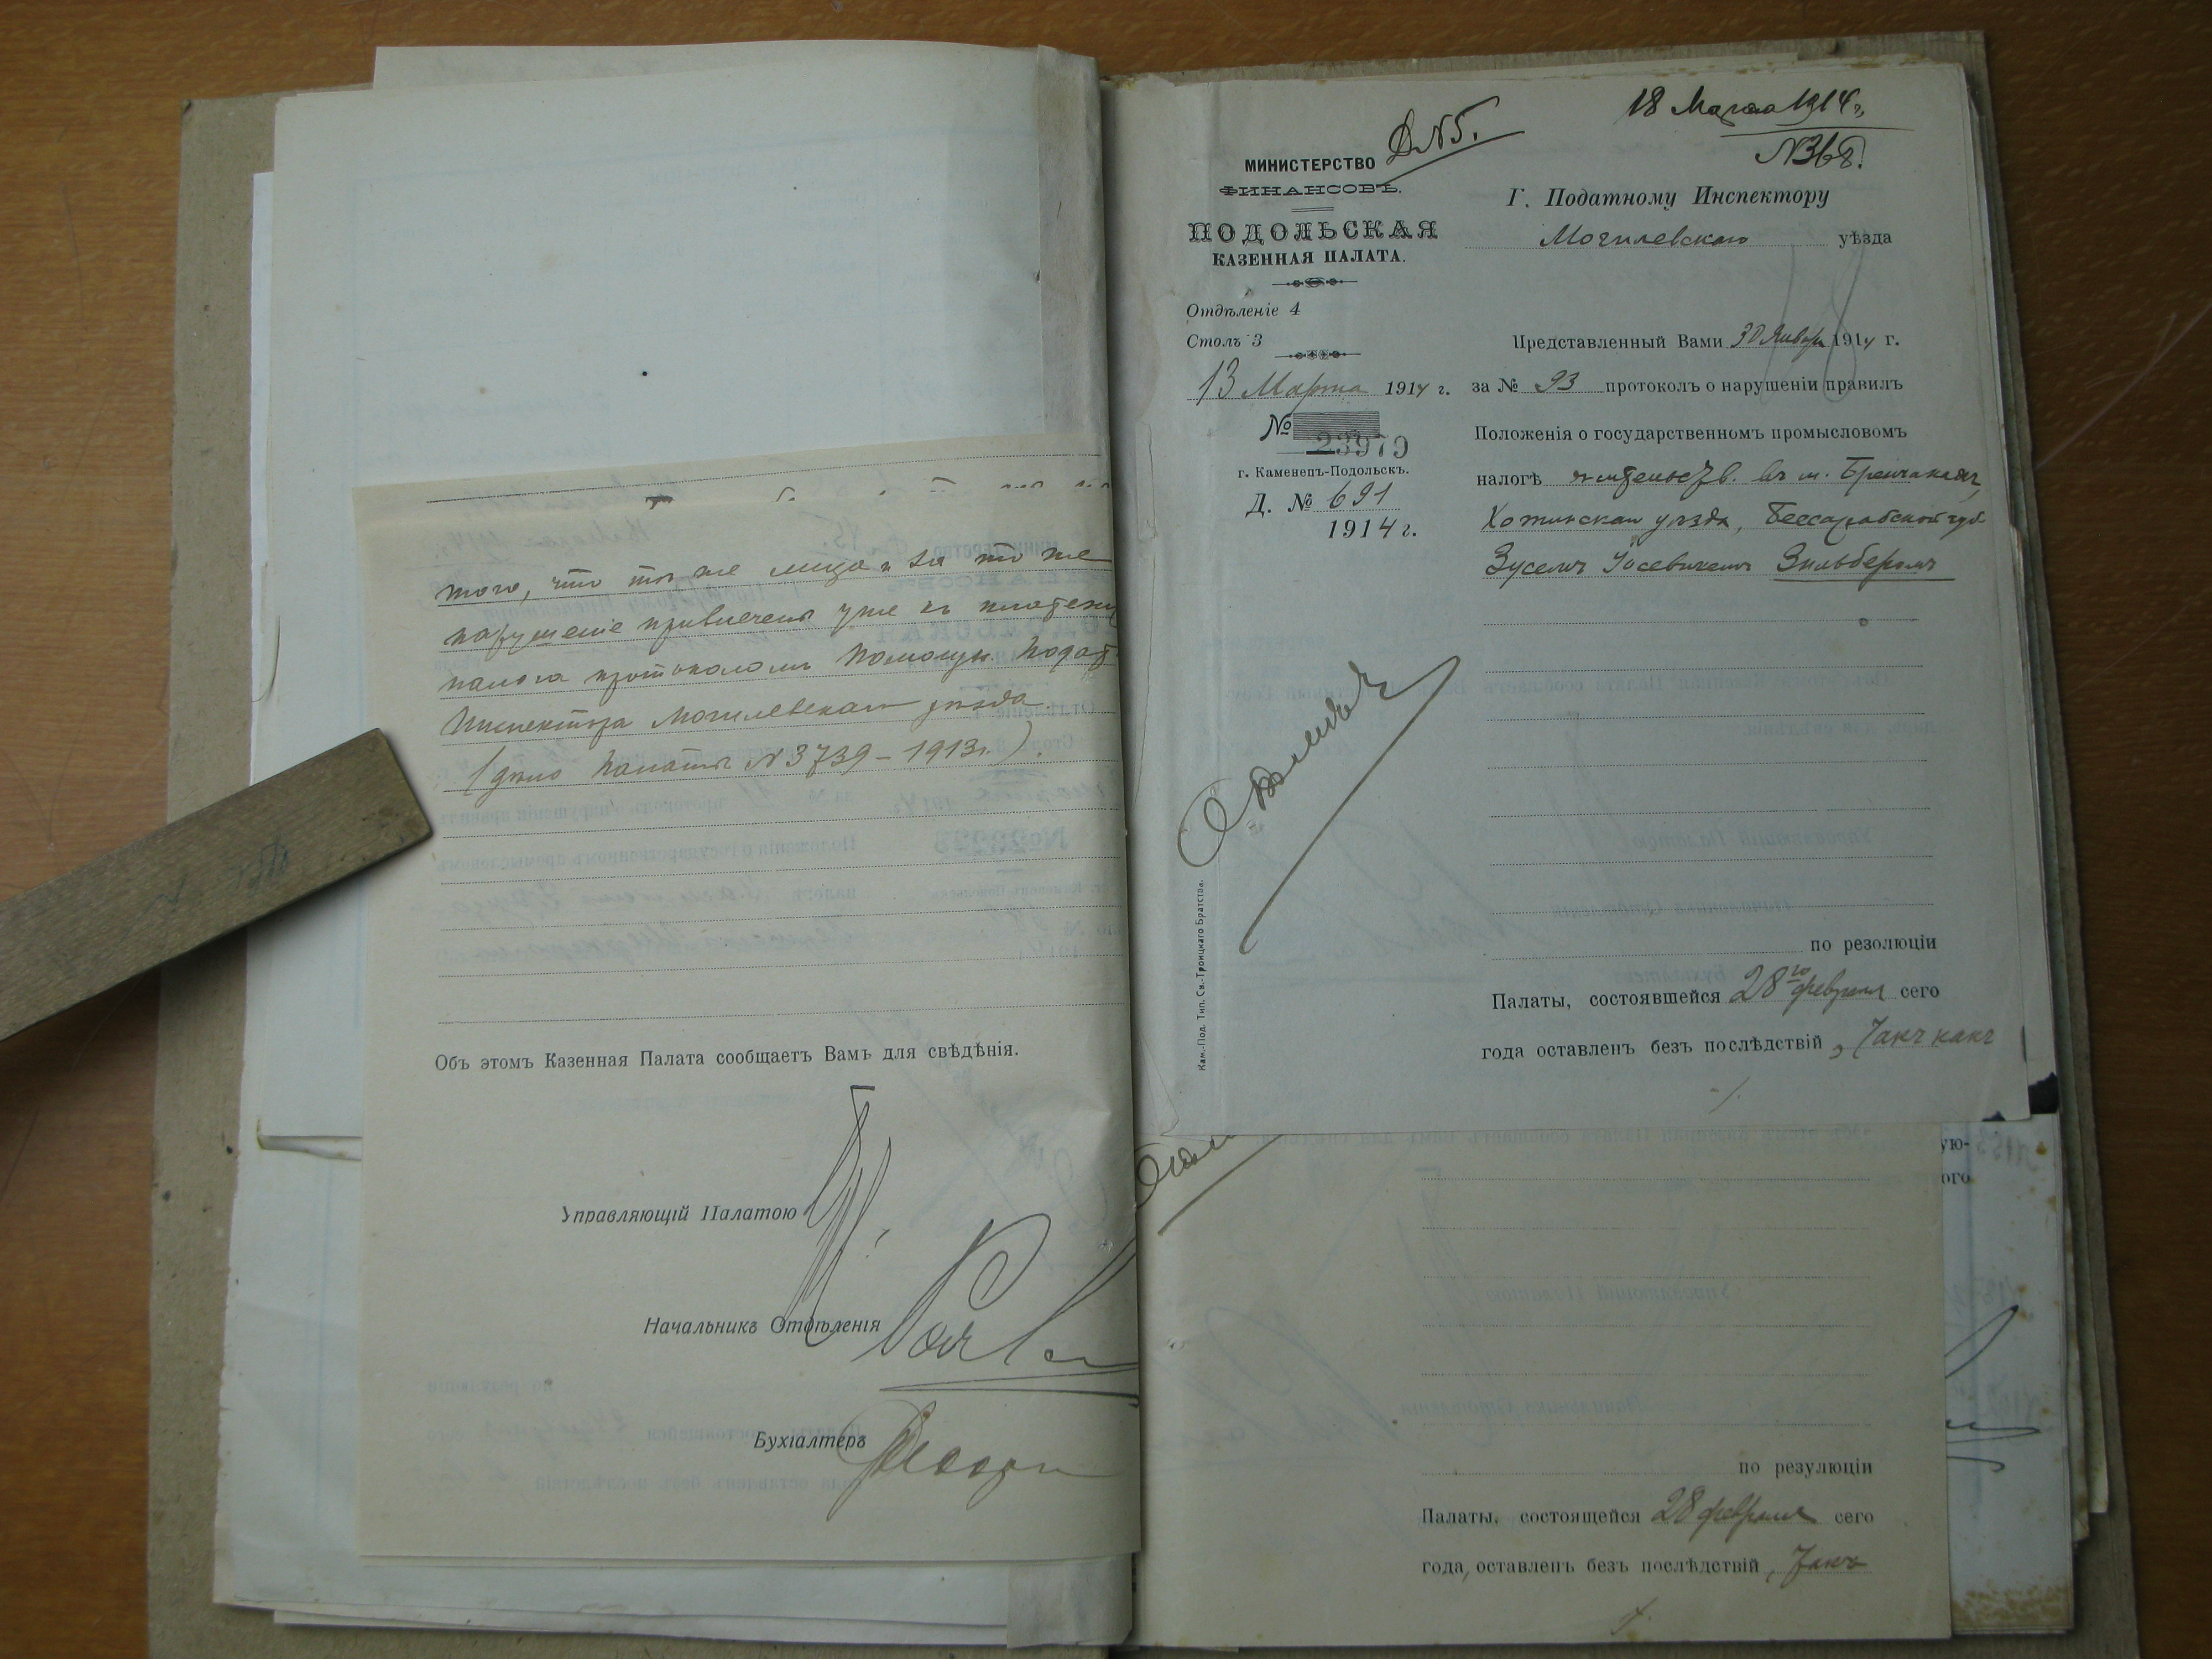 того, что тѣ же лица и за то же
нарушеніе привлечены уже къ платежу
налога протоколомъ Помощн. Подат.
Инспектора Могилевскаго уѣзда
(дѣло Палаты № 3739 – 1913 г.).
Объ этомъ Казенная Палата сообщаетъ Вамъ для свѣдѣнія.
Управляющій Палатою
Начальникъ Отдѣленія
Бухгалтеръ
18 Марта 1914 г.
№ 368.
Д №5.
МИНИСТЕРСТВО
ФИНАНСОВЪ.
ПОДОЛЬСКАЯ
КАЗЕННАЯ ПАЛАТА.
Отдѣленіе 4
Столъ 3
13 Марта 1914 г.
№ 23979
г. Каменецъ-Подольскъ.
Д. № 691
1914 г.
Кам.-Под. Тип. Св.-Троицкаго Братства.
Г. Податному Инспектору
Могилевскаго уѣзда
Представленный Вами 30 Января 1914 г.
за № 93 протоколъ о нарушеніи правилъ
Положенія о государственномъ промысловомъ
налогѣ жительств. въ м.
Хотинскаго уѣзда, Бессарабской губ.
Зуселемъ Іосевичемъ Зильберомъ
по резолюціи
Палаты, состоявшейся 28го февраля сего
года оставленъ безъ послѣдствій, такъ какъ
ую-
ого
по резулюціи
Палаты, состоящейся 28 февраля сего
года, оставленъ безъ послѣдствій, такъ